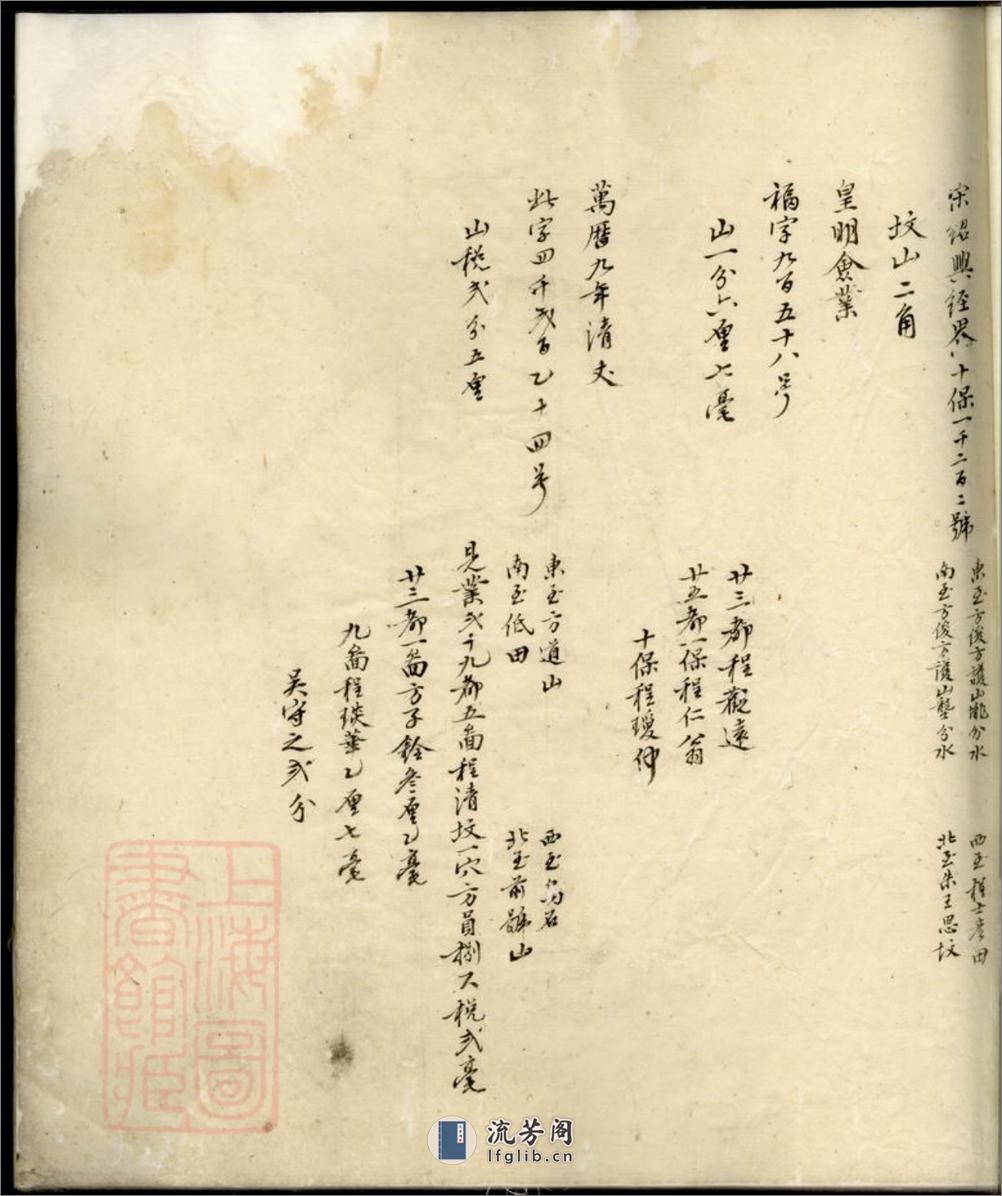 宋紹興經界十保一千二百二號
東至方俊方護山壠分水
西至程士彥田
南至方俊方護山壟分水
北至朱王思坟
坟山二角
皇明僉業
福字九百五十八号
山一分六厘七毫
廿三都程觀遠
廿五都一保程仁翁
十保程瓊仲
萬曆九年清丈
此字四千弐百乙十四号
東至方道山
西至烏石
南至低田
北至前號山
山稅弐分五厘
見業弍十九都五啚程清坟一穴方員捌尺稅弍毫
廿三都一啚方子銓叁厘乙毫
九啚程琰華乙厘七毫
吳守之弍分
上海圖書館藏
流芳阁
lfglib.cn